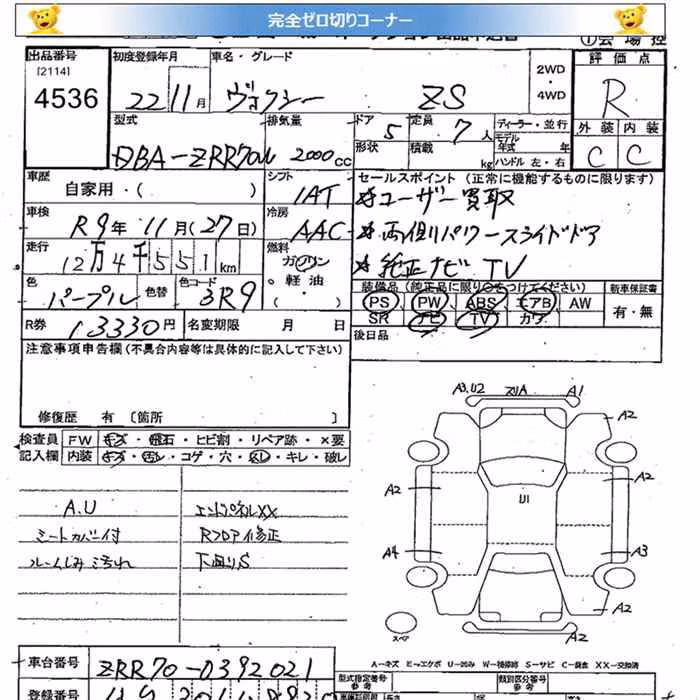 完全ゼロ切りコーナー
出品番号 初度登録年月 車名・グレード 2WD・4WD 評価点
[2114]
4536 22 11月 ヴォクシー ZS R
型式 排気量 ドア 5 定員 7人 ディーラー・並行 外装 内装
DBA-ZRR70W 2000cc 形状 積載 kg モデル年式 年 ハンドル 左・右 C C
車歴 自家用・( ) シフト 1AT セールスポイント (正常に機能するものに限ります)
*ユーザー買取
車検 R9年 11月(27日) 冷房 AAC *両側パワースライドドア
走行 12万4千551km 燃料 ガソリン・軽油・ *純正ナビ TV
色 パープル 色替 色コード 3R9 装備品 (純正品に限り○をつけてください) 新車保証書
PS PW ABS エアB AW 有・無
SR ナビ TV カワ
R券 13330円 名変期限 月 日 後日品
注意事項申告欄 (不具合内容等は具体的に記入して下さい)
修復歴 有 〔箇所 〕
検査員 FW キズ・飛石・ヒビ割・リペア跡・×要
記入欄 内装 キズ・汚レ・コゲ・穴・スレ・キレ・破レ
A.U エンドパネルXX
シートカバー付 Rフロア修正
ルームしみ 汚れ 下回りS
A3.U2 A1
A2
A2 U1 A2
A4 A3
A2
A2
スペア
A-キズ E-エクボ U-凹み W-補修跡 S-サビ C-腐食 XX-交換済
車台番号 ZRR70-0392021
型式指定番号 参考 類別区分番号 参考
登録番号